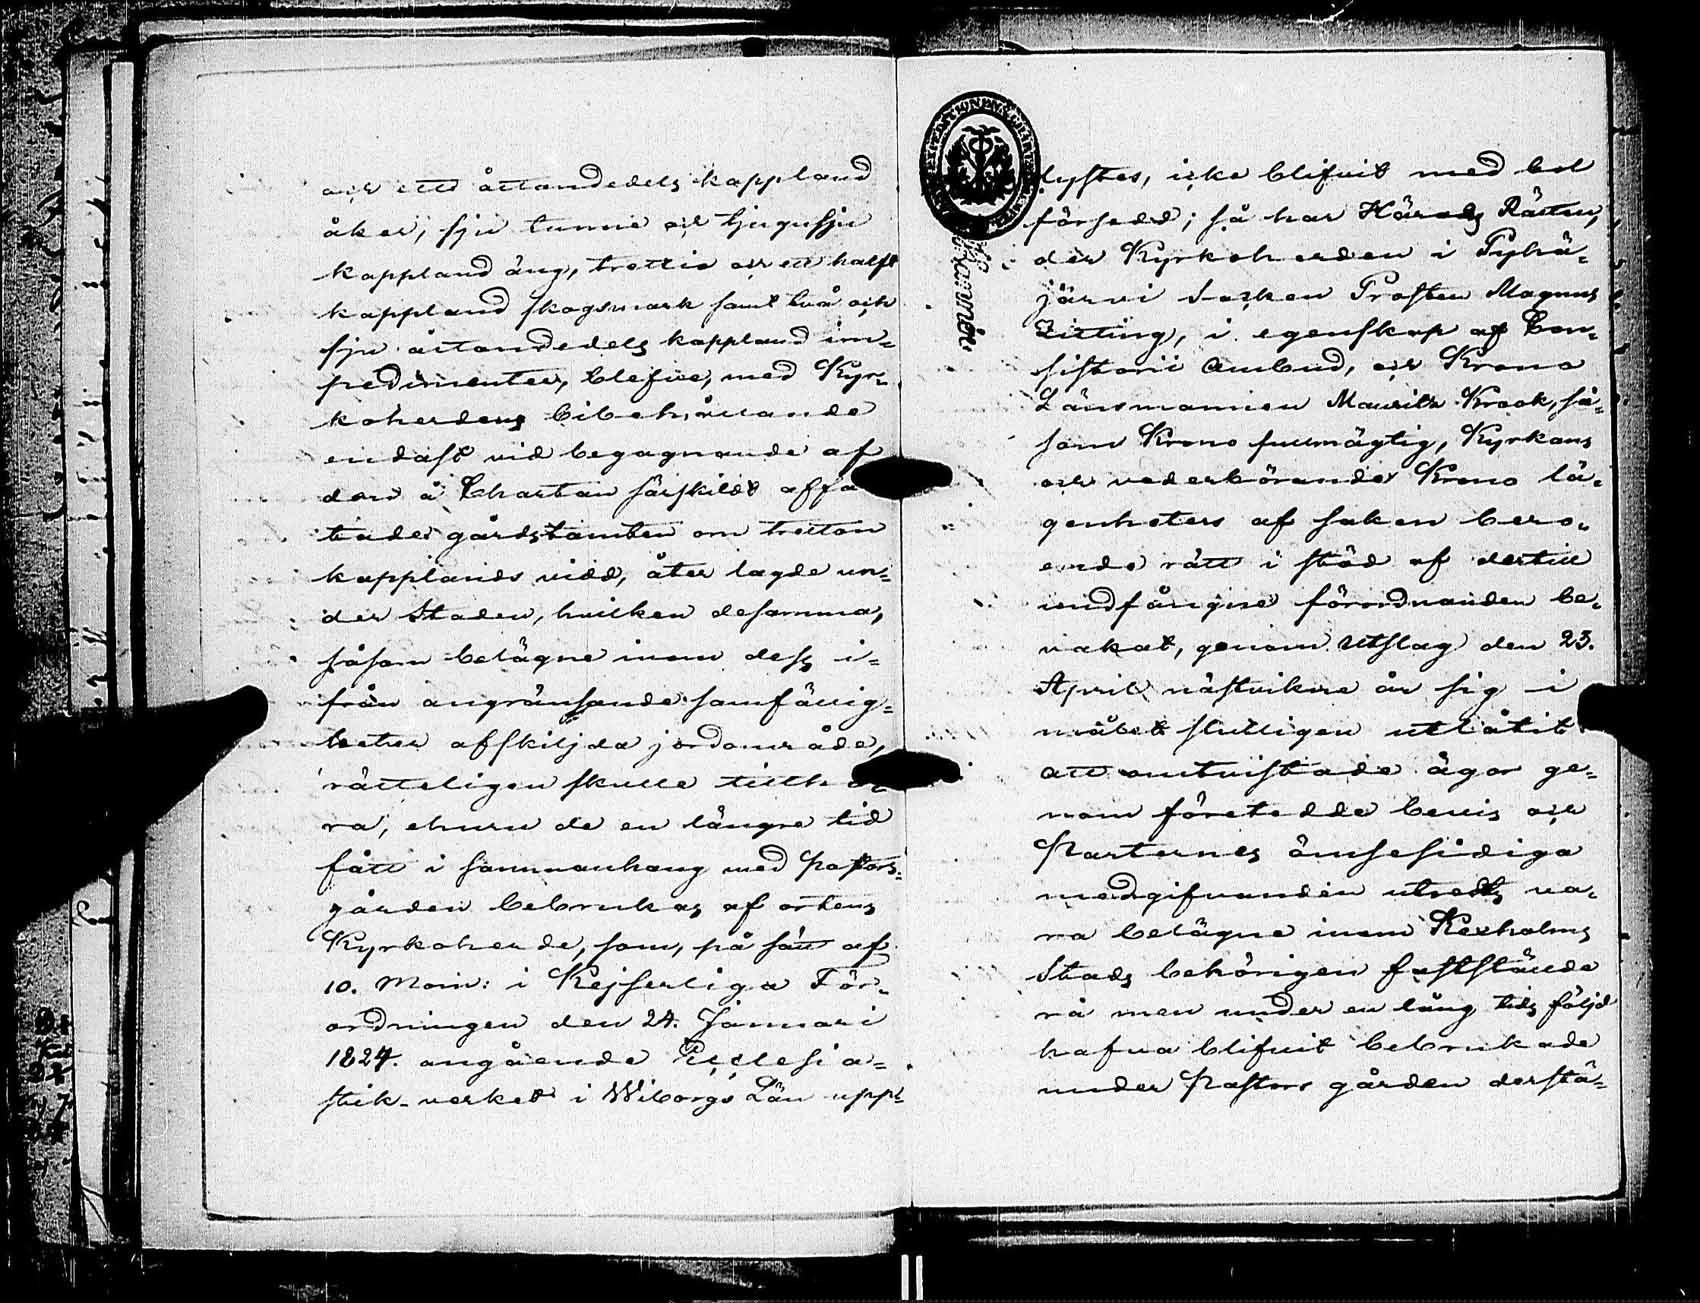 och ett åttondedels kappland
åker, sju tunne och tjugusju
kappland äng, trettio och ett halft
kappland skogsmark samt två och
sju åttondedels kappland im-
pedimenter, blefve, med Kyr-
koherdens bibehållande
endast vid begagnande af
den å Chartan särskildt affa
tade gårdstomten om tretton
kapplands vidd, åter lagde un-
der Staden, hvilken desamma,
såsom belägne inom dess i-
från angränsande samfällig-
heter afskiljda jordområde,
rätteligen skulle tillhö-
ra, ehuru de en längre tid
fått i sammanhang med Pastors-
gården bebrukas af ortens
Kyrkoherde, som, på sätt af
10. Mom: i Kejserliga För-
ordningen den 24. Januari
1824. angående Ecclesia-
stik-verket i Wiborgs Län uppl-
lystes, icke blifvit med bol
försedd; så har Härads Rätten,
der Kyrkoherden i Pyhä-
järvi Socken Prosten Magnus
Zitting, i egenskap af Con-
sistorii Ombud, och Krono
Länsmannen Mauritz Krook, så-
som Krono fullmägtig, Kyrkans
och vederbörande Krono lä-
genheters af saken bero-
ende rätt i stöd af dertill
undfångne förordnanden be-
vakat, genom Utslag den 23.
April nästvikne år sig i
målet slutligen utlåtit
att omtvistade ägor ge-
nom företedde bevis och
Parternes ömsesidiga
medgifvanden utredts va-
ra belägne inom Kexholms
Stads behörigen fastställde
rå men under en lång tids följd
hafva blifvit bebrukade
under Pastors gården derstä-